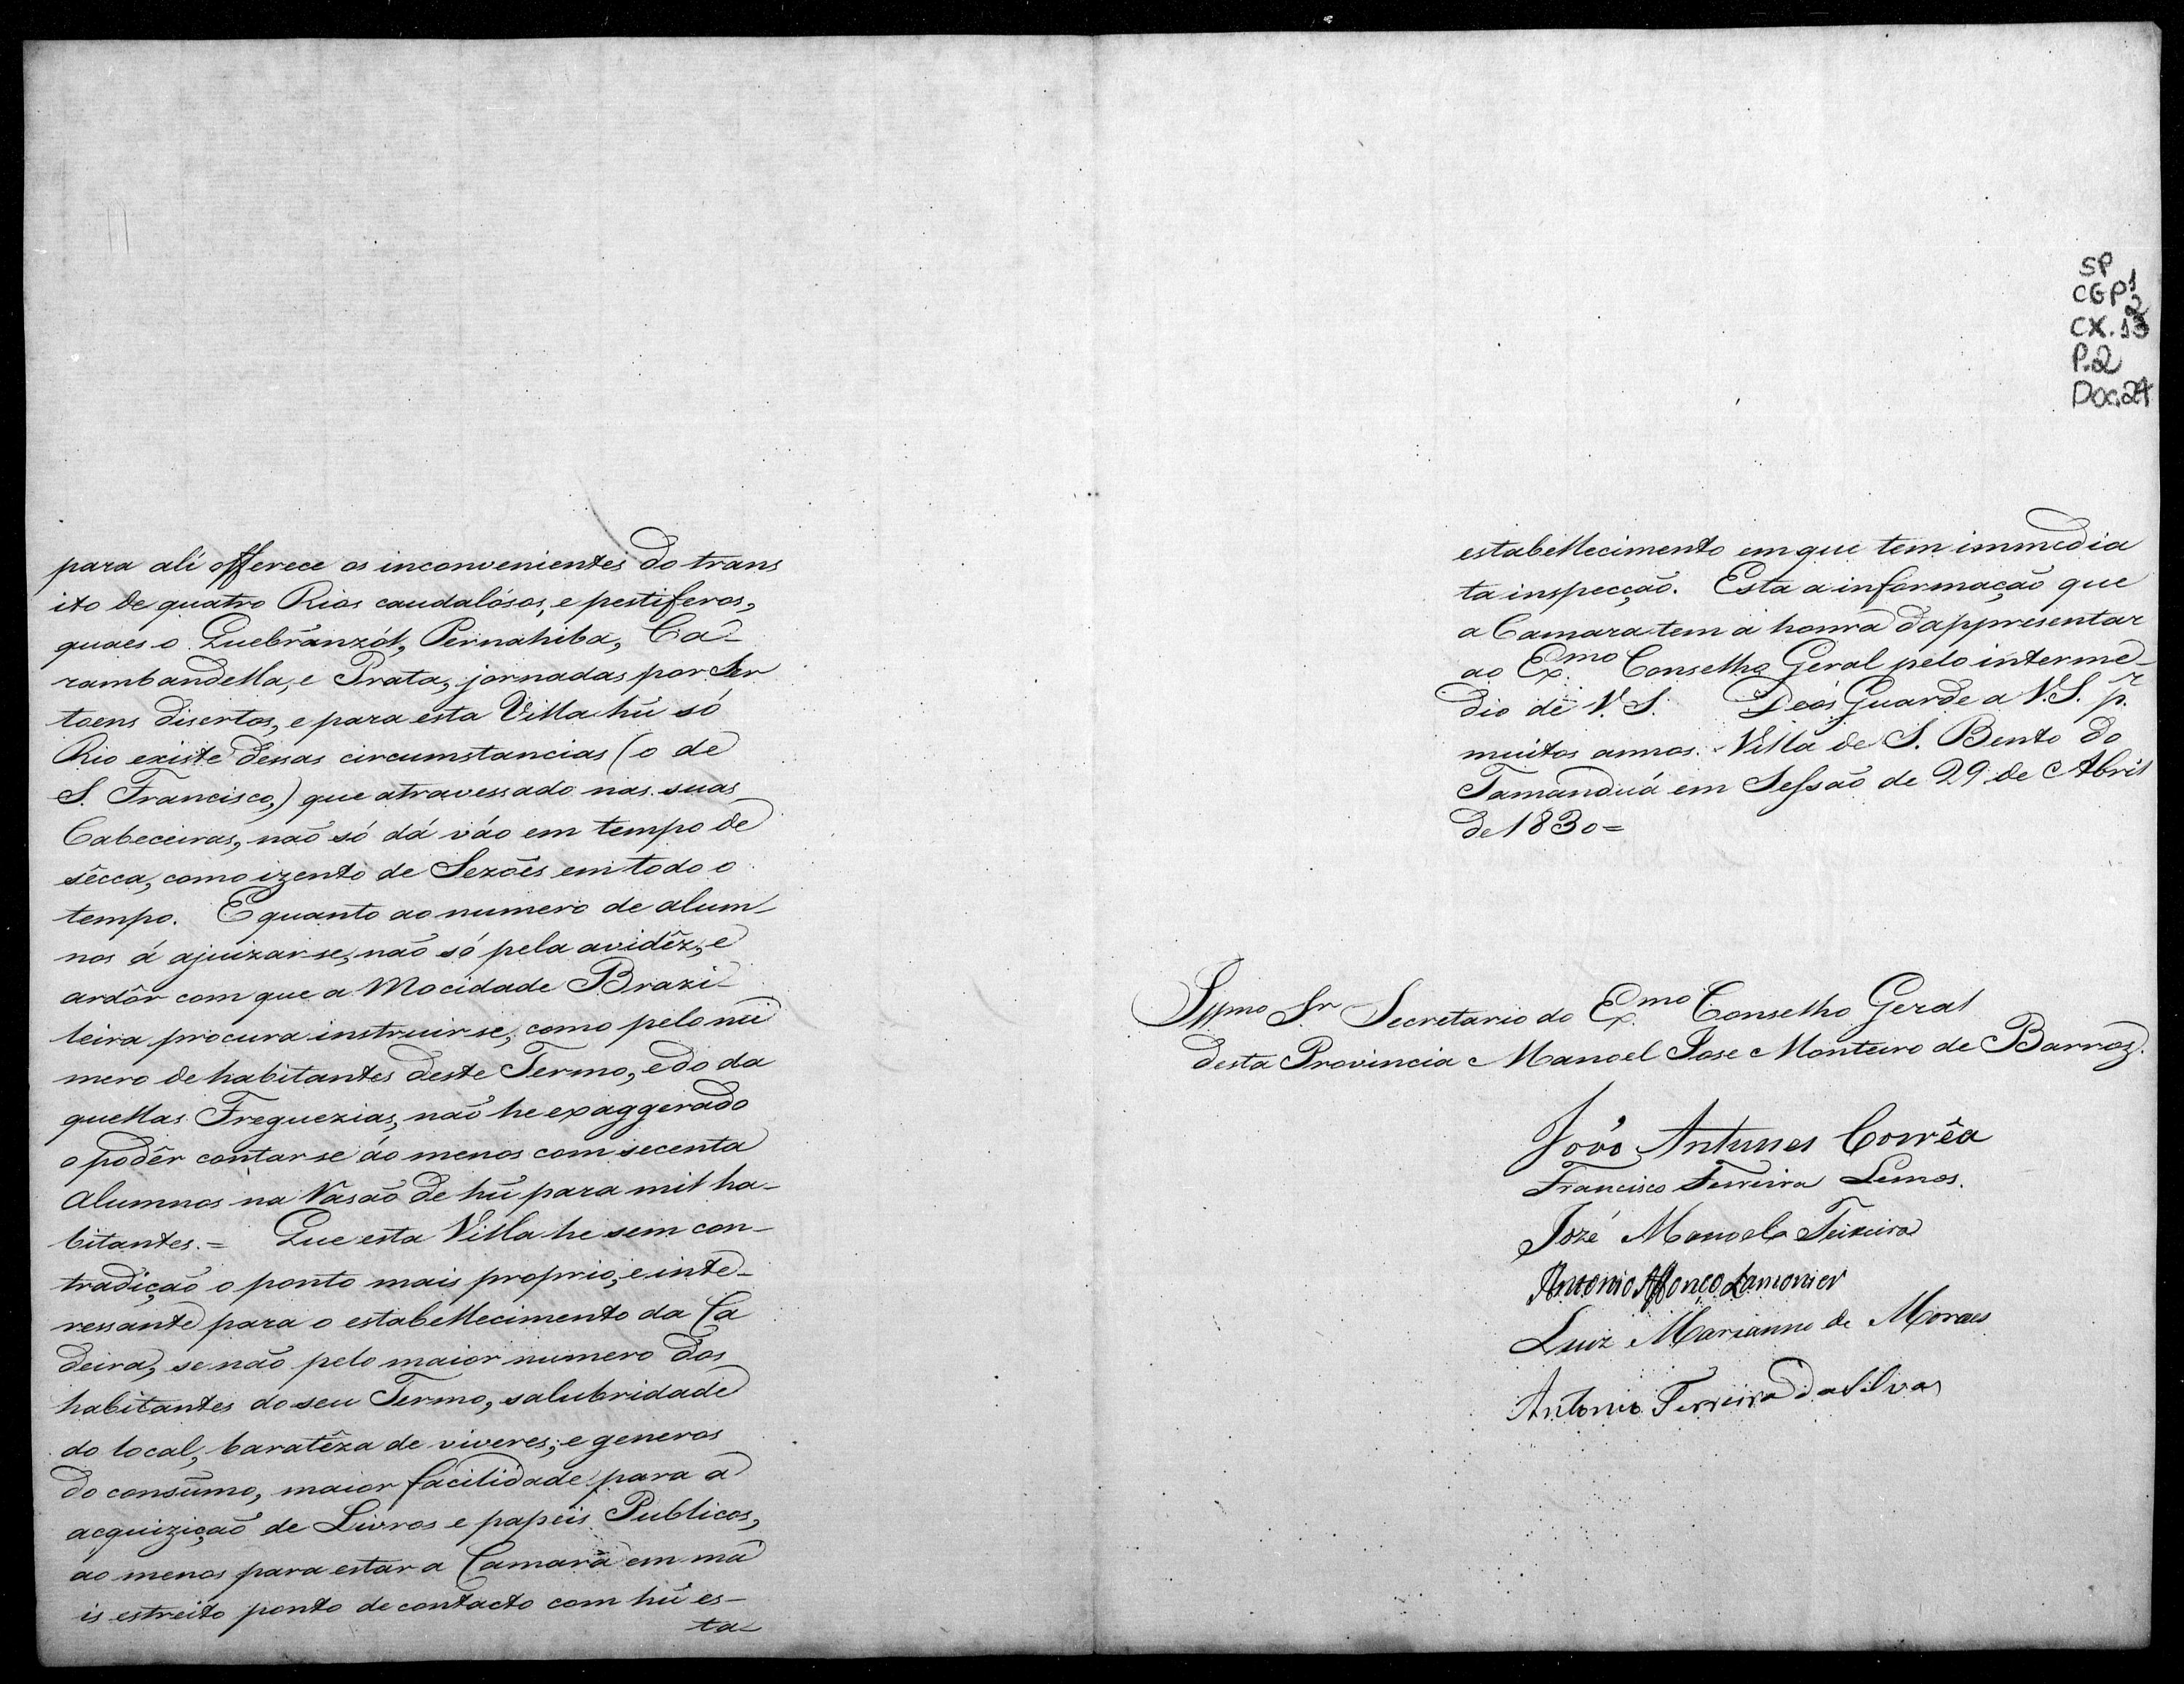 para alí offerece os inconvenientes do trans
ito de quatro Rios caudalósos, e pestiferos,
quaes o Quebranzót, Pernahiba, Ca-
rambandella, e Prata, jornadas por Ser
toens disertos, e para esta Villa hũ só
Rio existe dessas circumstancias (o de
S. Francisco,) que atravessado nas suas
Cabeceiras, naõ só dá váo em tempo de
sêcca, como izento de Sezoẽs em todo o
tempo. E quanto ao numero de alum-
nos á ajuizarse, naõ só pela avidêz, e
ardôr com que a Mocidade Brazi-
leira procura instruirse, como pelo nu
mero de habitantes deste Termo, e do da
quellas Freguezias, naõ he exaggerado
o podêr contarse áo menos com secenta
Alumnos na Rasaõ de hũ para mil ha-
bitantes. = Que esta Villa he sem con-
tradiçaõ o ponto mais proprio, e inte-
ressante para o estabellecimento da Ca
deira, se naõ pelo maior numero dos
habitantes do seu Termo, salubridade
do local, baratêza de viveres, e generos
do consumo, maior facilidade para a
acquiziçaõ de Livros e papeis Publicos,
ao menos para estar a Camara em ma
is estreito ponto de contacto com hũ es-
ta-
SP
CGP1
CX. 13
2
P.2
Doc.24
estabellecimento em que tem immedia
ta inspecçaõ. Esta a informaçaõ que
a Camara tem a honra d'appresentar
ao Ex.mo Conselho Geral pelo interme-
dio de V. S. Deos Guarde a V. S. p.r
muitos annos. Villa de S. Bento do
Tamanduá em Sessaõ de 29 de Abril
de 1830 =
Illmo Sr Secretario do Ex.mo Conselho Geral
desta Provincia Manoel Jose Monteiro de Barros.
João Antunes Corrêa
Francisco Ferreira Lemos.
Jozé Manoel Teixeira
Antonio Affonço Lamonier
Luiz Marianno de Moraes
Antonio Ferreira da Silva